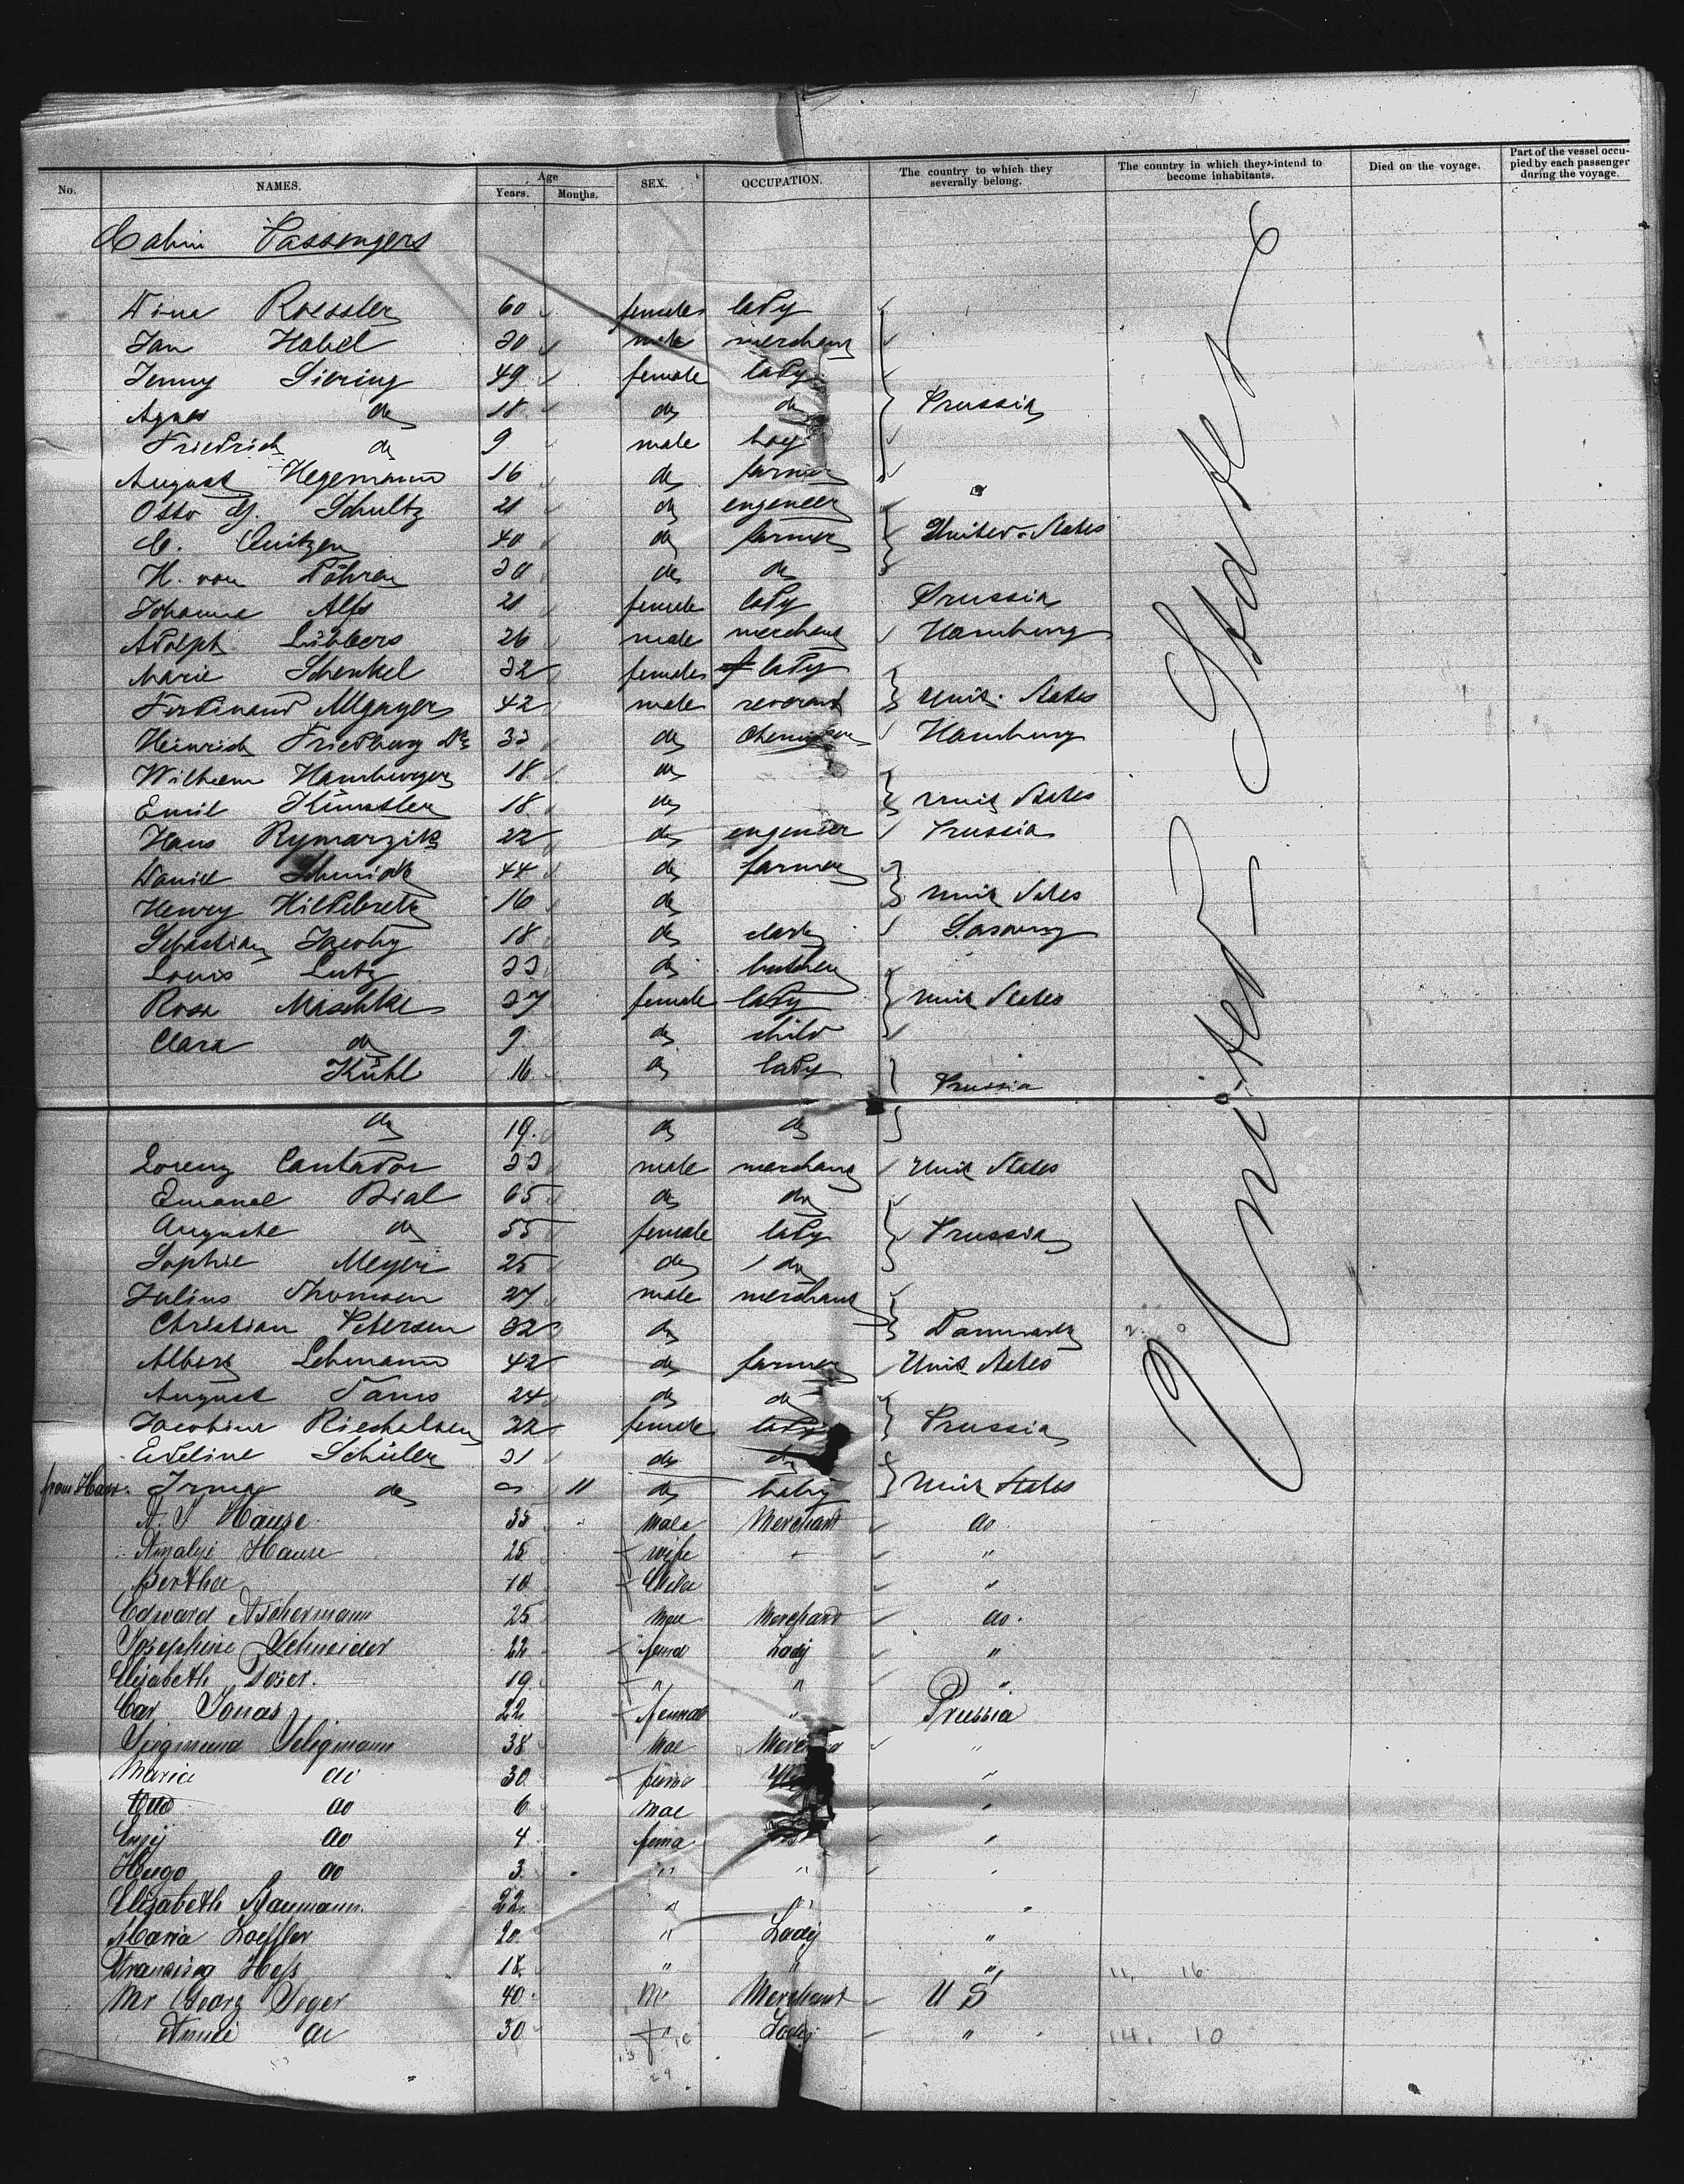 No. NAMES. Age Years. Months. SEX. OCCUPATION. The country to which they severally belong. The country in which they intend to become inhabitants. Died on the voyage. Part of the vessel occupied by each passenger during the voyage.
Cabin Passengers
United States
Roessler 60 female lady
Jan Habel male merchant
Jenny Siering 49 female lady
Agnes do 18 do do Prussia
Friedrich do 9 male boy
August Hegemann 16 do farmer
Otto Schultz 21 do engeneer
C. Quitzen 40 do farmer United States
H. von do do
Johanna Alfs 21 female lady Prussia
Adolph Lübbers 26 male merchant Hamburg
Marie Schenkel 32 female lady
Ferdinand 42 male reverend Unit. States
Heinrich Friedburg Dr 33 do Hamburg
Wilhelm Hamburger 18 do
Emil Künstler 18 do Unit States
Hans Rymarzik 22 do engeneer Prussia
Daniel Schmidt 44 do farmer
Henry 16 do Unit States
Sebastian Jacoby 18 do
Louis Lutz 33 do butcher
Rosa Maschke 37 female lady Unit States
Clara do 9 do child
Kühl 16 do lady Prussia
do 19 do do
Lorenz Cantador 33 male merchant Unit States
Emanel Bial 65 do do
Auguste do 55 female lady Prussia
Sophie Meyer 25 do do
Julius Thomsen 27 male merchant
Christian Petersen 32 do Danmark
Albert Lehmann 42 do farmer Unit States
August 24 do do
Jacobine 32 female lady Prussia
Eveline Schüler 31 do do
from Havre. Irma do 11 do baby Unit States
Hause 35 Male Merchant do
Amalyi Hause 25 wife "
Bertha 10 Child "
Edward Aschermann 25 Mae Merchant do.
Josephine Schneider 22 fema Lady "
Elisabeth 19 " " "
Jonas 22 femal " Prussia
Siegmund Seligmann 38 Mae "
Maria do 30 fema "
Otto do 6 Mae "
do 4 fema "
Hugo do 3 " " "
Elisabeth Baumann 22 " " "
Maria Loeffler 20 " Lady "
Hess 18 " " " 11, 16
Mr Georg Seger 40 M Merchant U S
do 30 f Lady " 14, 10